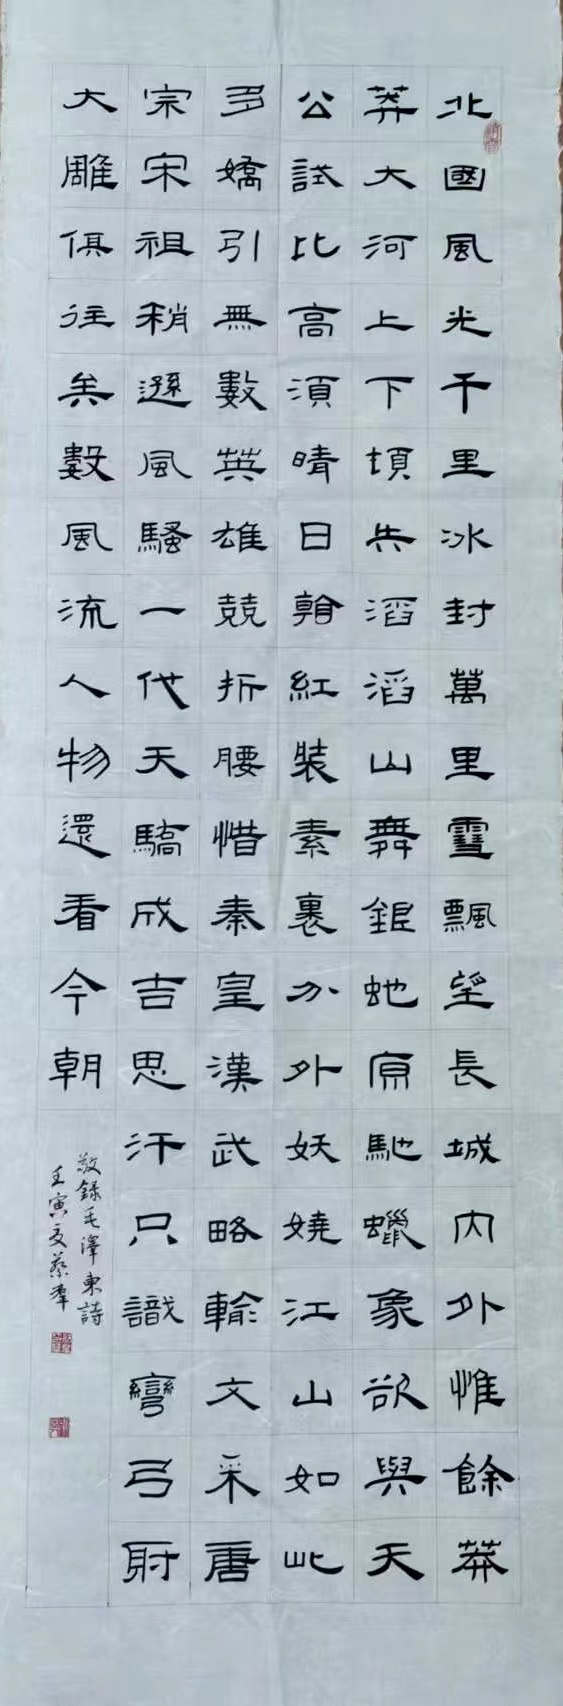 北國風光千里冰封萬里雪飄望長城内外惟餘莽
莽大河上下頃失滔滔山舞銀蛇原馳蠟象欲與天
公試比高須晴日看紅裝素裹分外妖嬈江山如此
多嬌引無數英雄競折腰惜秦皇漢武略輸文采唐
宗宋祖稍遜風騷一代天驕成吉思汗只識彎弓射
大雕俱往矣數風流人物還看今朝
敬錄毛澤東詩
壬寅夏蔡羣